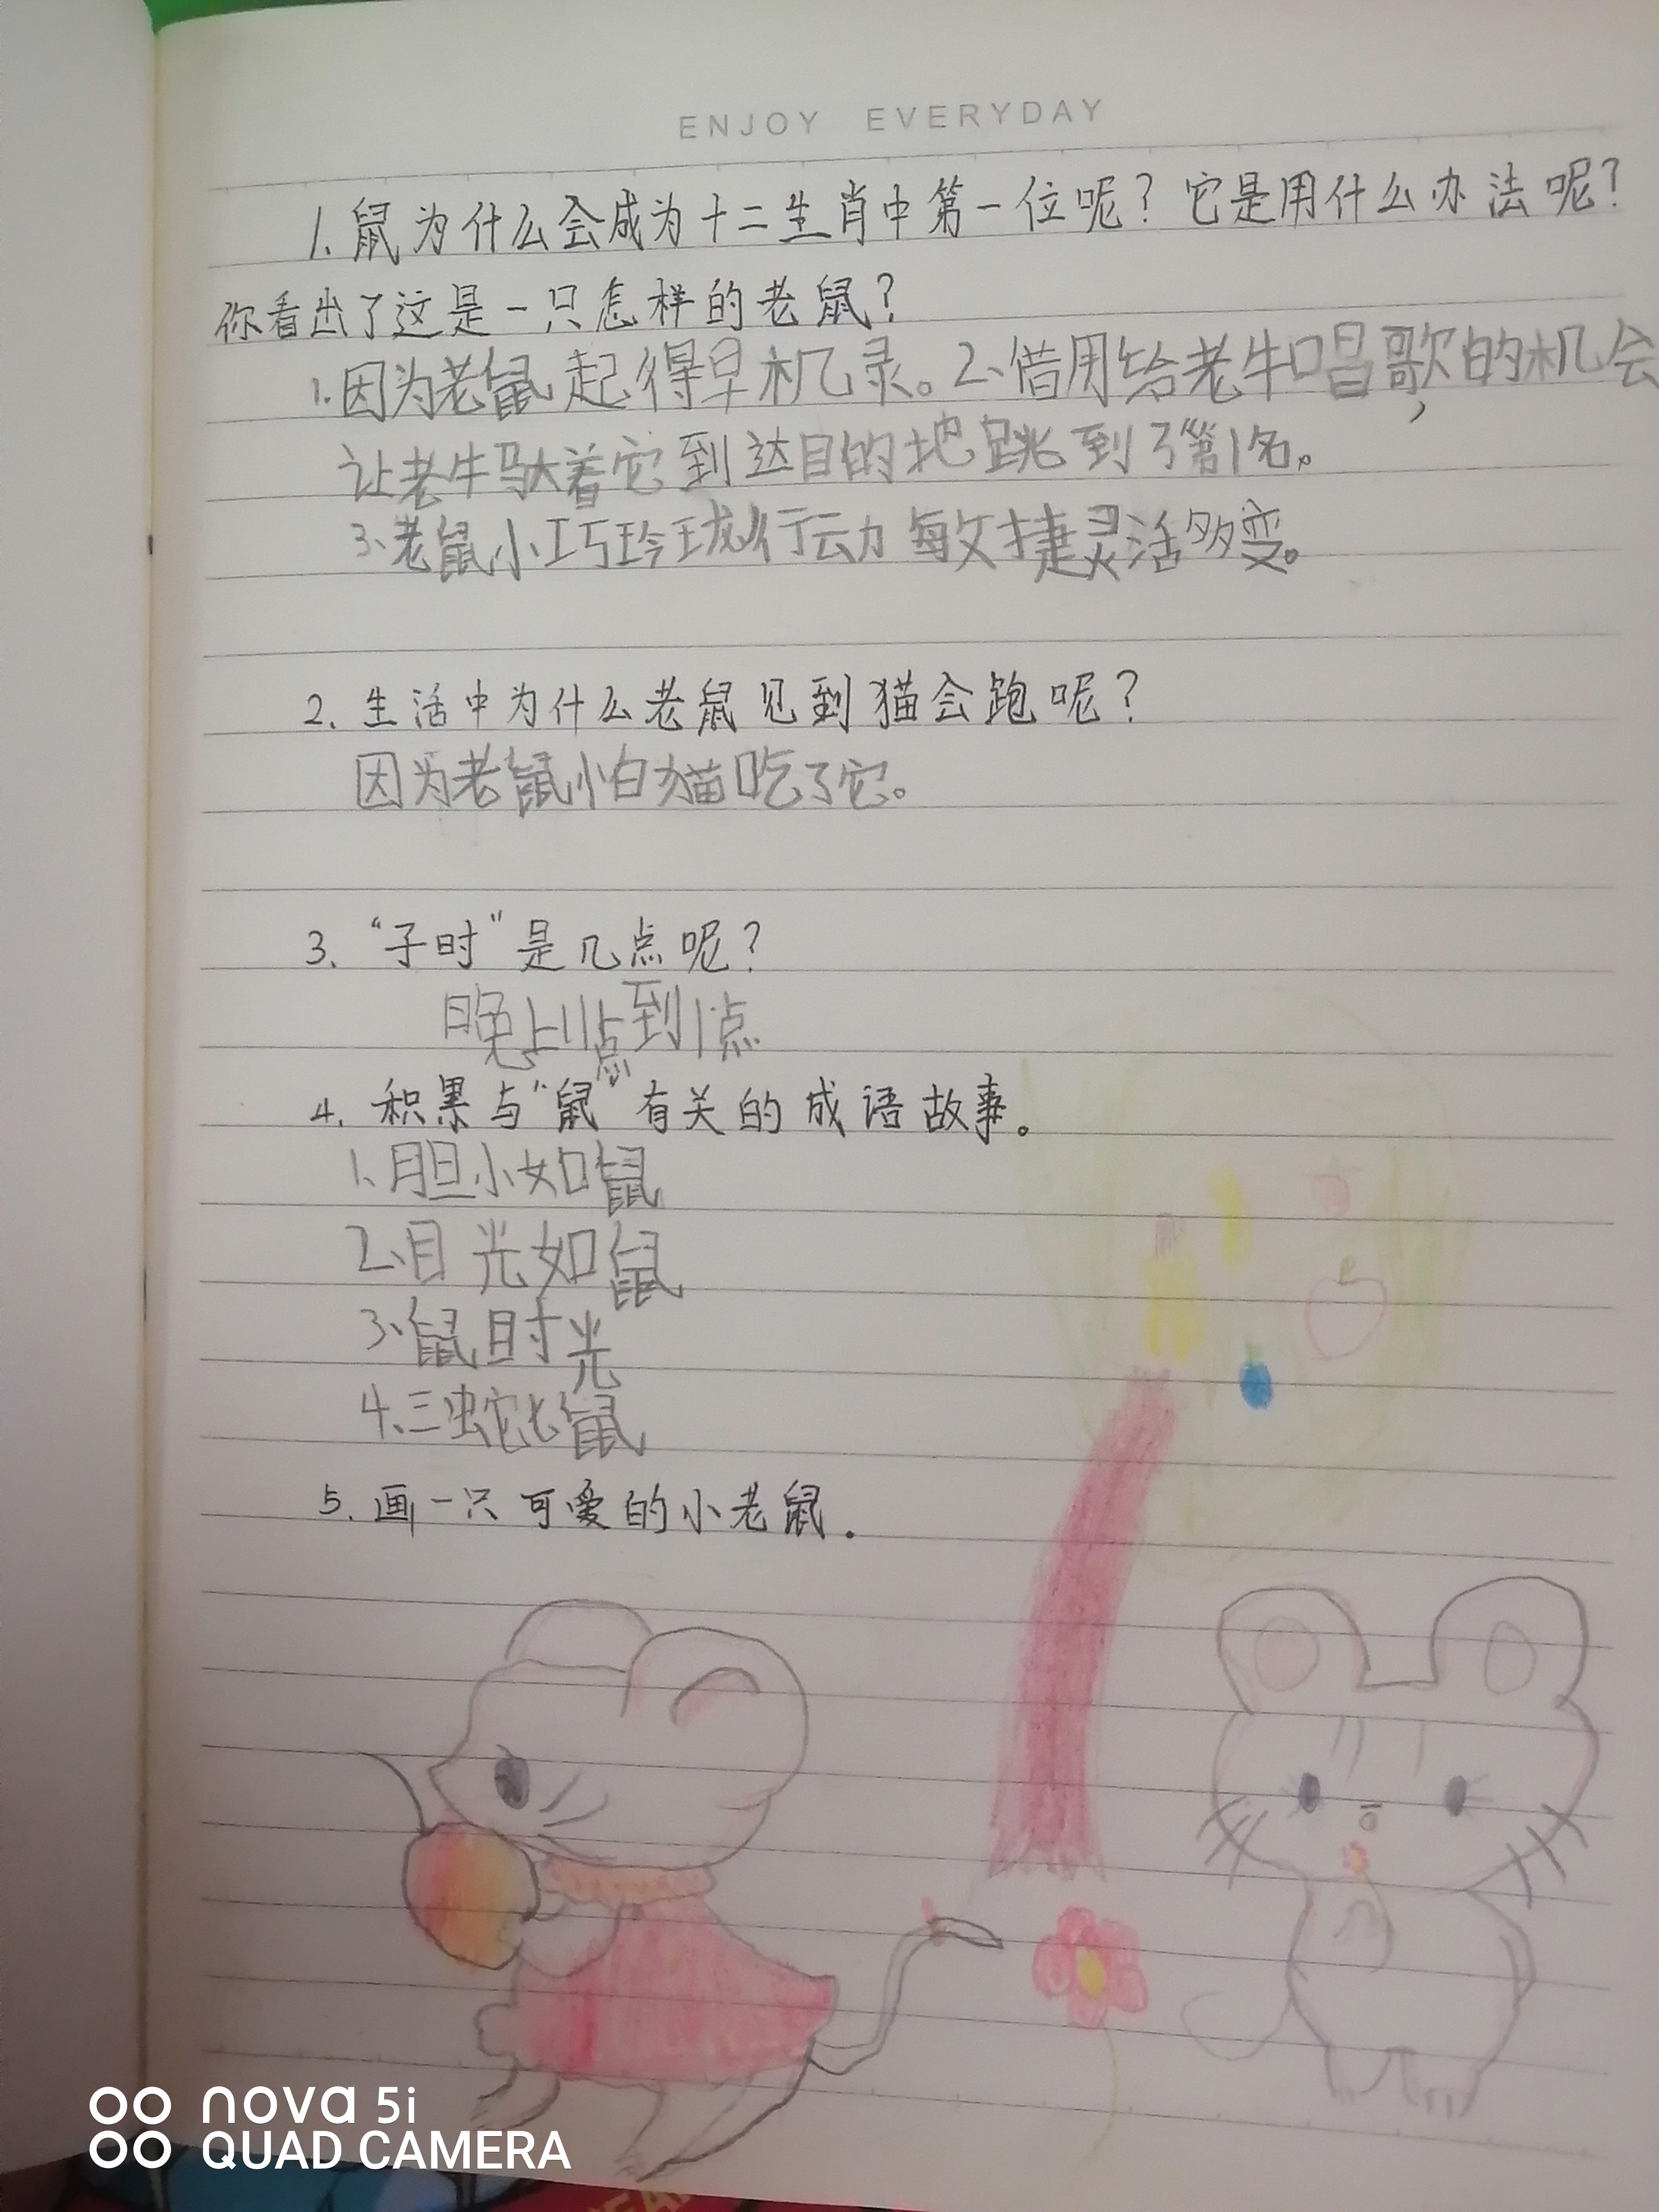 ENJOY EVERYDAY
1. 鼠为什么会成为十二生肖中第一位呢？它是用什么办法呢？
你看出了这是一只怎样的老鼠？
1.因为老鼠起得早机灵。2、借用给老牛唱歌的机会，
让老牛驮着它到达目的地跳到了第1名。
3、老鼠小巧玲珑行动敏捷灵活多变。
2. 生活中为什么老鼠见到猫会跑呢？
因为老鼠怕猫吃了它。
3. “子时”是几点呢？
晚上11点到1点
4. 积累与“鼠”有关的成语故事。
1、胆小如鼠
2、目光如鼠
3、鼠时光
4、三蛇七鼠
5. 画一只可爱的小老鼠.
nova 5i
QUAD CAMERA